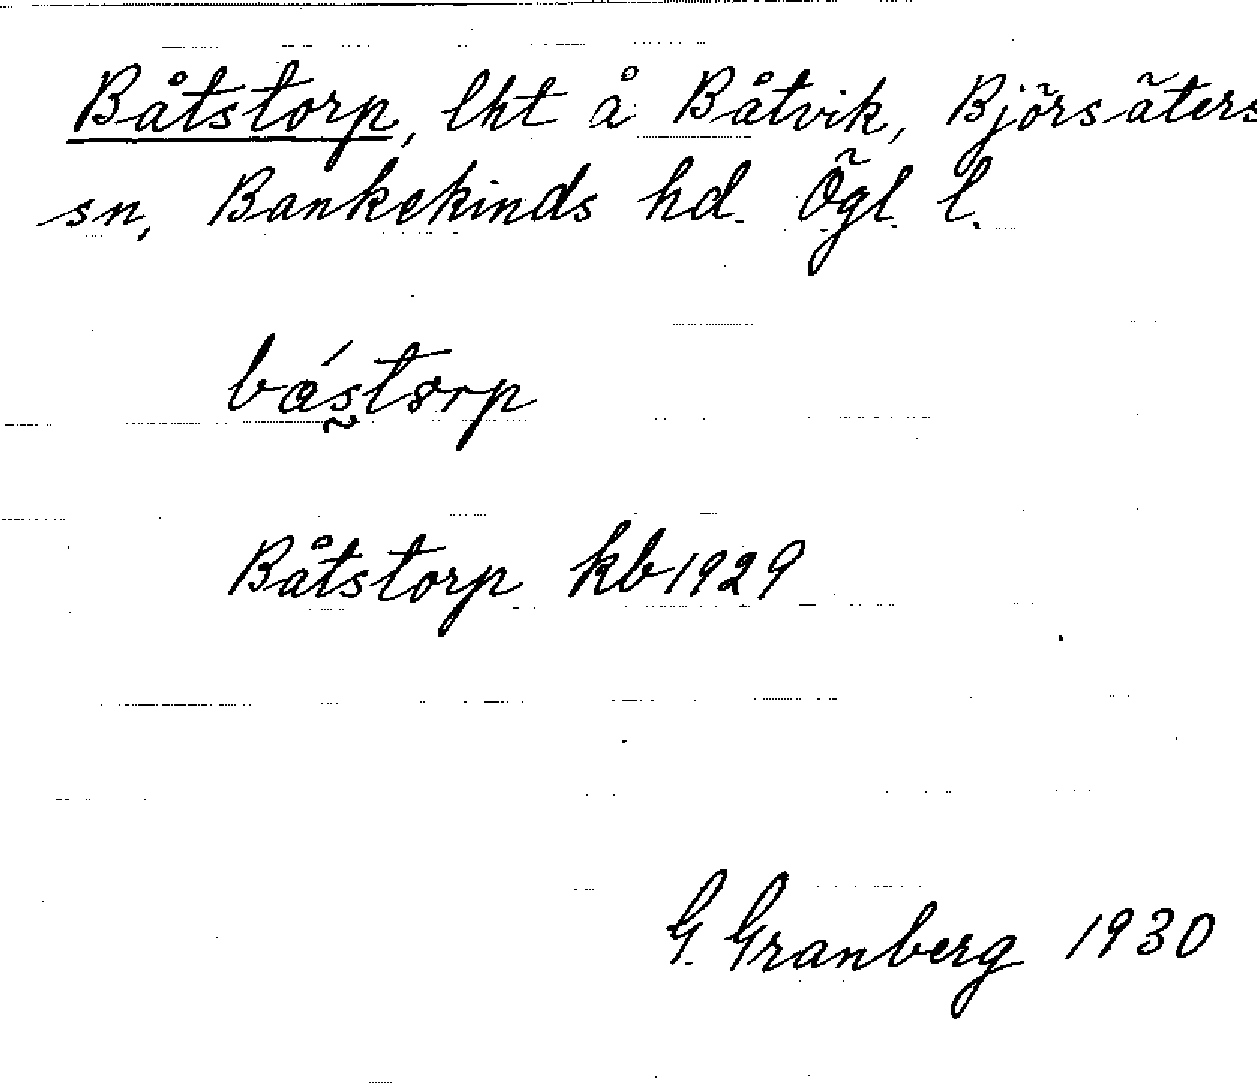 Båtstorp, lht å Båtvik, Björsäters
sn, Bankekinds hd. Ögl. l.
båstorp
Båtstorp kb 1929
G. Granberg 1930